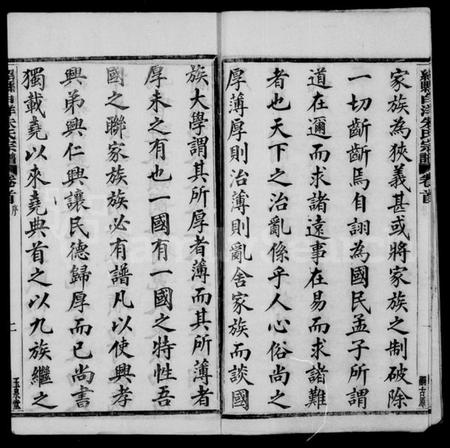 家族為狹義甚或將家族之制破除
一切齗齗焉自詡為國民孟子所謂
道在邇而求諸遠事在易而求諸難
者也天下之治亂係乎人心俗尚之
厚薄厚則治薄則亂舍家族而談國
族大學謂其所厚者薄而其所薄者
厚未之有也一國有一國之特性吾
國之聯家族族必有譜凡以使興孝
興弟興仁興讓民德歸厚而已尚書
獨載堯以來堯典首之以九族繼之
白洋朱氏宗譜 卷首 序
玉泉堂